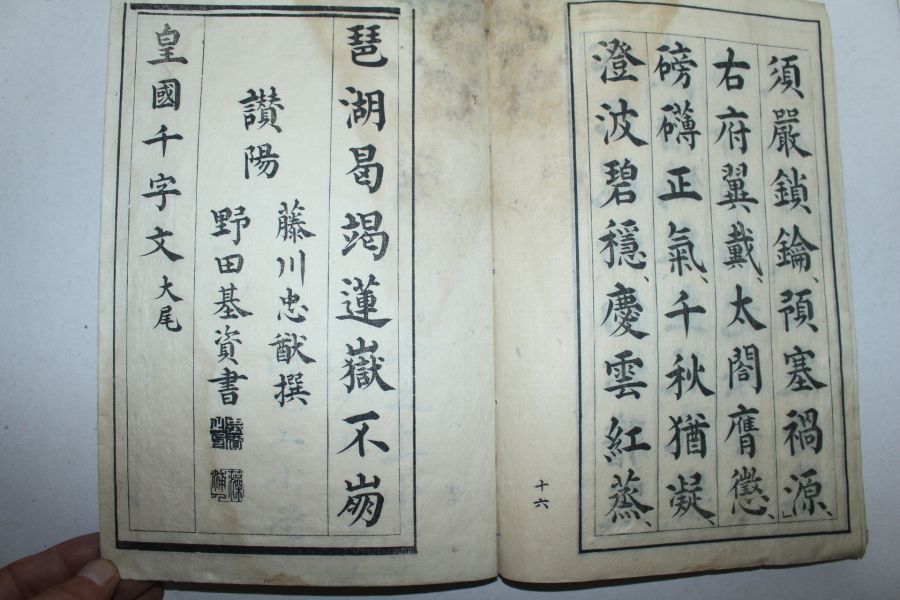 須嚴鎖鑰、預塞禍源、
右府翼戴、太閤膺懲、
磅礴正氣、千秋猶凝、
澄波碧穩、慶雲紅蒸、
十六
琶湖曷竭蓮嶽不崩
讚陽
藤川忠猷撰
野田基資書
皇國千字文大尾